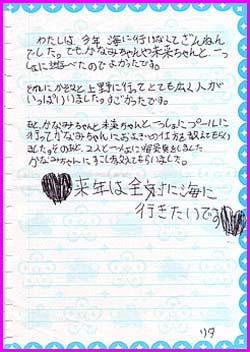 わたしは、今年海に行けなくてざんねん
でした。でもかなみちゃんや未来ちゃんと、一っ
しょに遊べたのでよかったです。
それにかぞくと上野に行ってとても広く人が
いっぱいいました。すごかったです。
あとかなみちゃんと未来ちゃんといっしょにプールに
行ってかなみちゃんにおよぎの仕方を教えてもらい
ました。そのあと、2人と一っしょに
かなみちゃんにすこし教えてもらいました。
来年は全対に海に
行きたいです
リタ